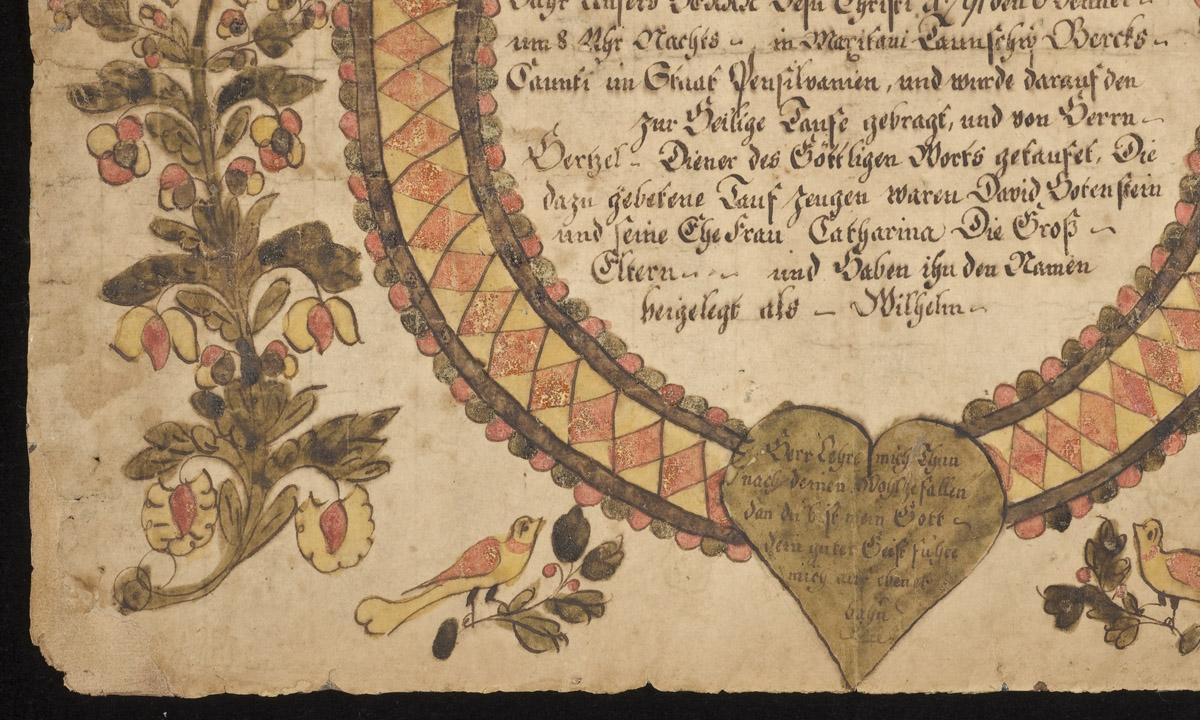 Jahr Unsers HERRN Jesu Christi 1791 den 6 Jenner
um 8 Uhr Nachts – in Maxitani Taunschip Bercks –
Caunti im Staat Pensilvanien, und wurde darauf den
zur Heilige Taufe gebragt, und von Herrn –
Hertzel – Diener des Göttligen Worts getaufet, Die
dazu gebetene Tauf Zeugen waren David Gotenstein
und seine Ehe Frau Catharina Die Groß –
Eltern – – und Haben ihn den Namen
beigelegt als – Wilhelm –
Herr Lehre mich Thun
nach deinen Wohlgefallen
dan du bist mein Gott –
dein guter Geist führe
mich auf ebener
bahn